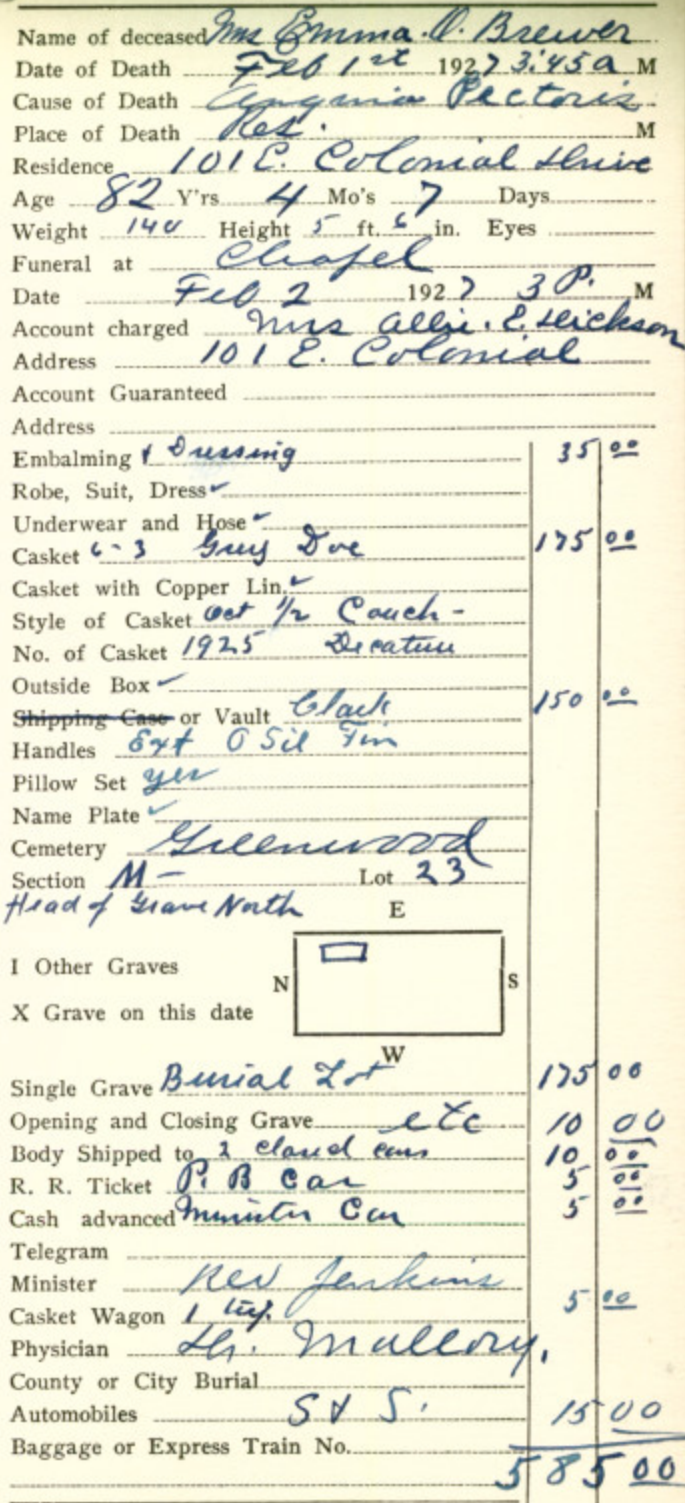 Name of deceased Mrs Emma. O. Brewer
Date of Death Feb 1st 1927 3:45 a M
Cause of Death Anguia Pectoris
Place of Death Res. M
Residence 101 E. Colonial Drive
Age 82 Y'rs 4 Mo's 7 Days
Weight 140 Height 5 ft. 6 in. Eyes
Funeral at Chapel
Date Feb 2 1927 3 P. M
Account charged Mrs Allie. E. Dickson
Address 101 E. Colonial
Account Guaranteed
Address
Embalming & Dressing 35 00
Robe, Suit, Dress ✓
Underwear and Hose ✓
Casket 6-3 Grey Doe 175 00
Casket with Copper Lin. ✓
Style of Casket Oct 1/2 Couch -
No. of Casket 1925 Decature
Outside Box ✓
Shipping Case or Vault Clark 150 00
Handles Ext O Sil Fin
Pillow Set yes
Name Plate ✓
Cemetery Greenwood
Section M - Lot 23
Head of Grave North
E
I Other Graves
N S
X Grave on this date
W
Single Grave Burial Lot 175 00
Opening and Closing Grave etc 10 00
Body Shipped to 2 closed cars 10 00
R. R. Ticket P. B Car 5 00
Cash advanced Minister Car 5 00
Telegram
Minister Rev Jenkins
Casket Wagon 1 5 00
Physician Dr. Mallory.
County or City Burial
Automobiles S & S. 15 00
Baggage or Express Train No.
585 00